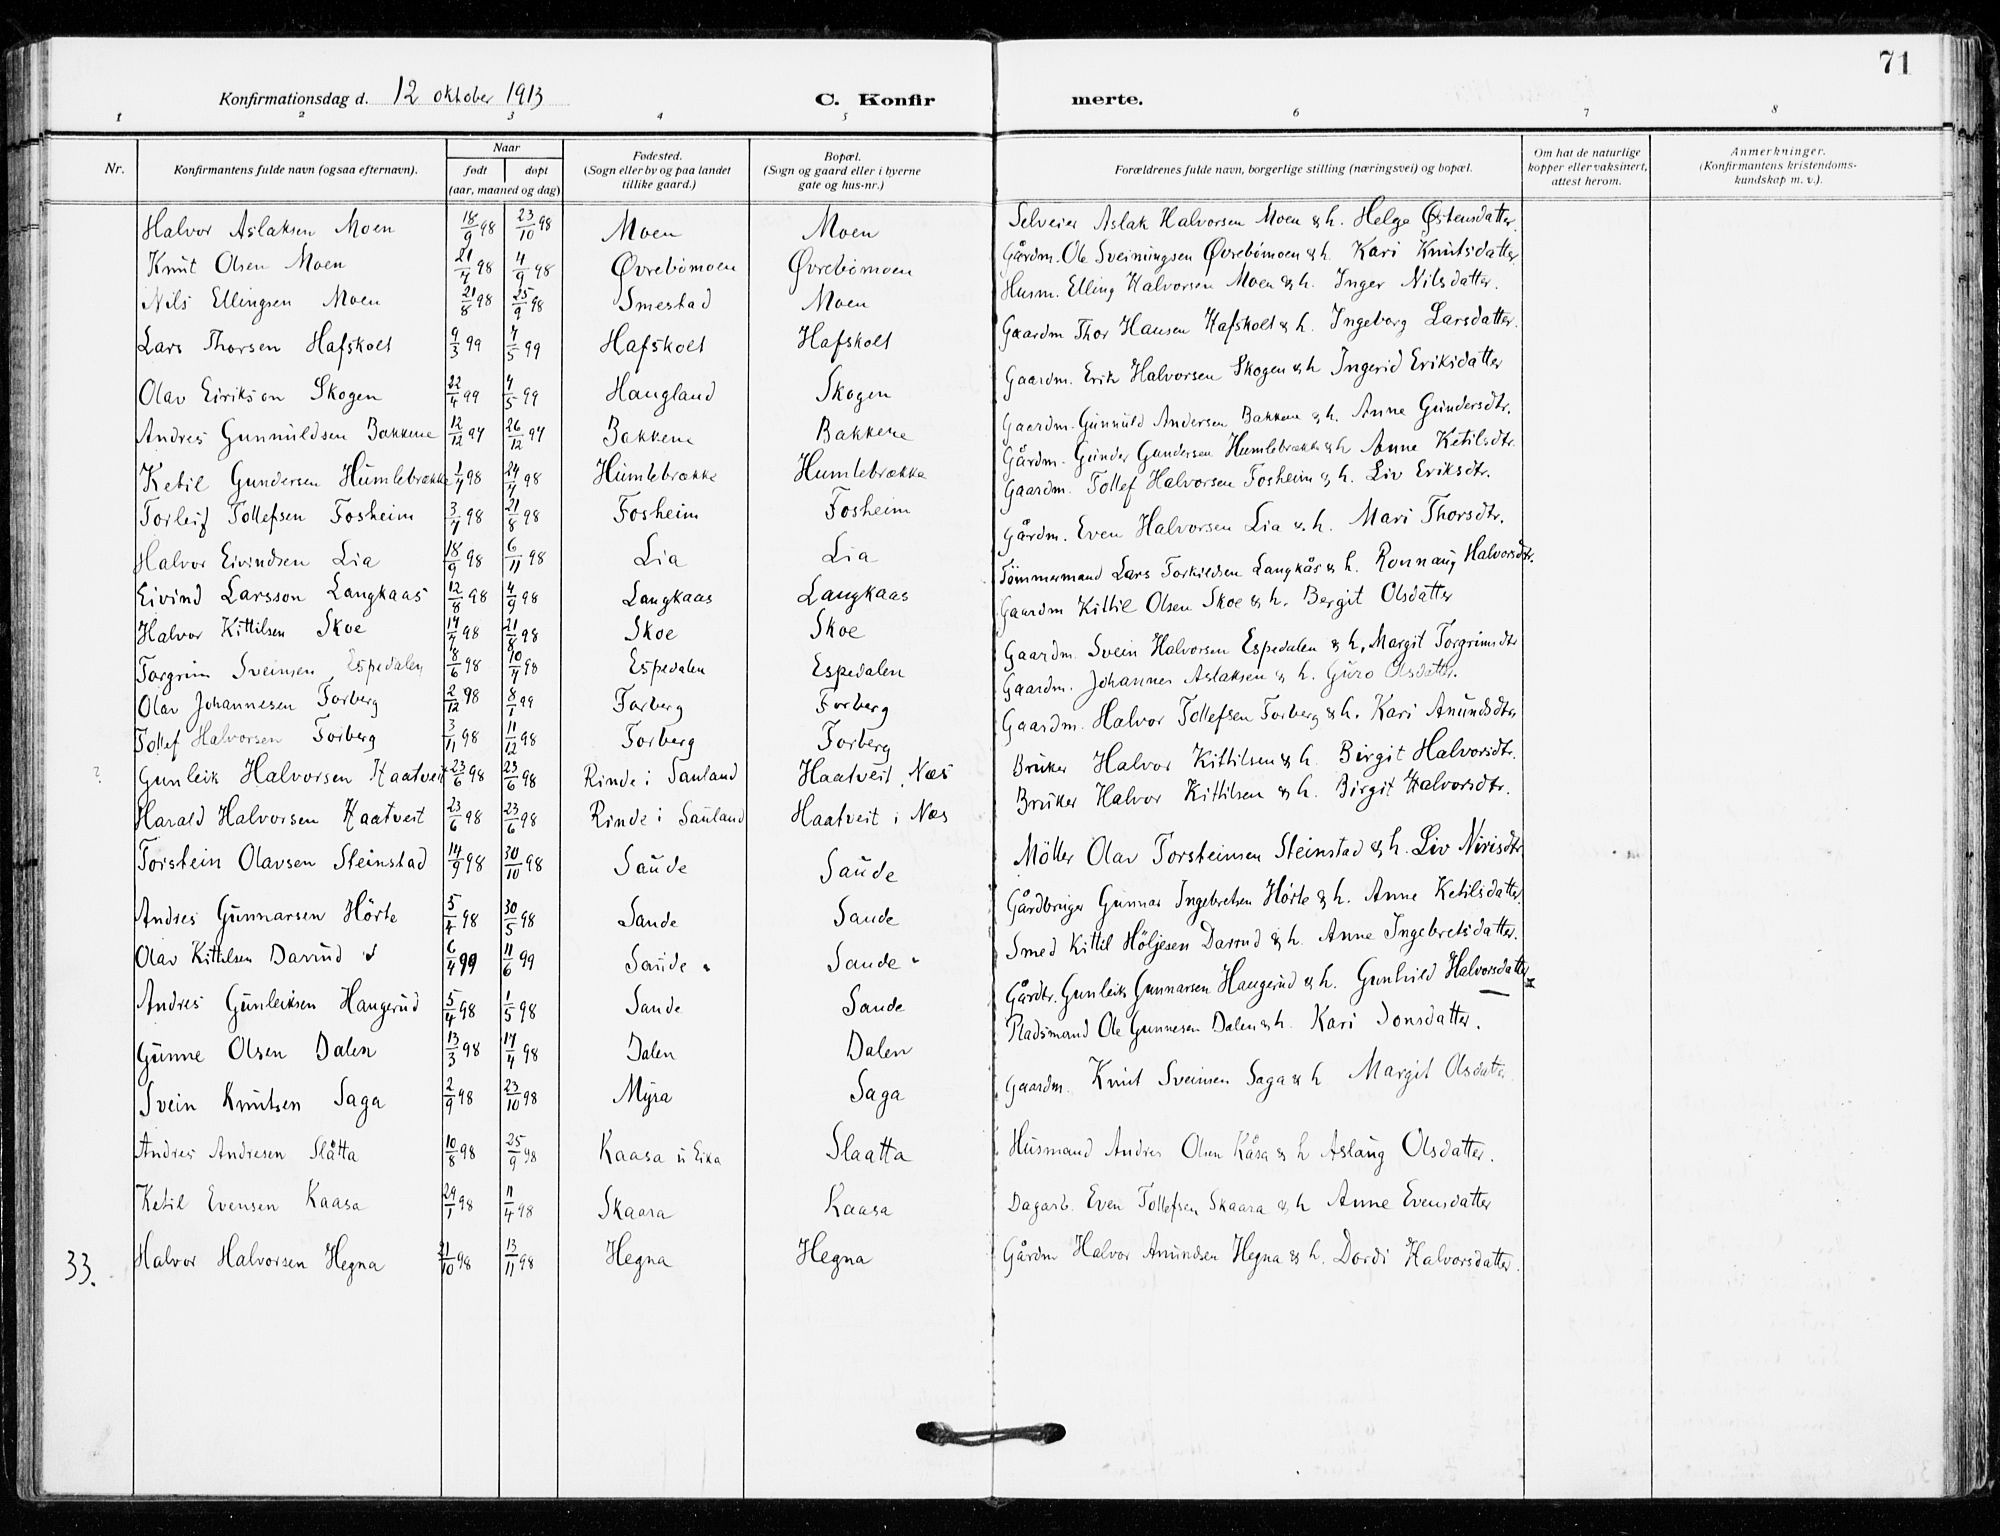 71
Konfirmationsdag d. 12 oktober 1913 C. Konfir merte.
1 2 3 4 5 6 7 8
Nr. Konfirmantens fulde navn (ogsaa efternavn). Naar født døpt (aar, maaned og dag) Fødested. (Sogn eller by og paa landet tillike gaard.) Bopæl. (Sogn og gaard eller i byerne gate og hus-nr.) Forældrenes fulde navn, borgerlige stilling (næringsvei) og bopæl. Om hat de naturlige kopper eller vaksinert, attest herom. Anmerkninger. (Konfirmantens kristendoms-kundskap m. v.).
Halvor Aslaksen Moen 18/9 98 23/10 98 Moen Moen Selveier Aslak Halvorsen Moen & h. Helge Østensdatter
Knut Olsen Moen 21/7 98 4/9 98 Øvrebömoen Øvrebömoen Gårdm. Ole Sveinungsen Øvrebömoen & h. Kari Knutsdatter
Nils Ellingsen Moen 21/8 98 25/9 98 Smestad Moen Husm. Elling Halvorsen Moen & h. Inger Nilsdatter.
Lars Thorsen Hafskolt 9/3 99 7/5 99 Hafskolt Hafskolt Gaardm Thor Hansen Hafskolt & h. Ingeborg Larsdatter.
Olav Eirikson Skogen 22/4 99 7/5 99 Haugland Skogen Gaardm. Erik Halvorsen Skogen & h Ingerid Eriksdatter
Andres Gunnuldsen Bakkene 12/12 97 26/12 97 Bakkene Bakkene Gaardm. Gunnuld Andersen Bakkene & h. Anne Gundersdtr.
Ketil Gundersen Humlebrække 1/7 98 24/7 98 Humlebrække Humlebrækka Gårdm. Gunder Gundersen Humlebrække & h Anne Ketilsdtr.
Torleif Tollefsen Fosheim 3/7 98 21/8 98 Fosheim Fosheim Gaardm. Tollef Halvorsen Fosheim & h. Liv Eriksdtr.
Halvor Eivindsen Lia 18/9 98 6/11 98 Lia Lia Gårdm. Even Halvorsen Lia & h. Mari Thorsdtr.
Eivind Larsson Langkaas 12/8 98 4/9 98 Langkaas Langkaas Tömmermand Lars Torkildsen Langkås & h. Ronnaug Halvorsdtr.
Halvor Kittilsen Skoe 14/7 98 21/8 98 Skoe Skoe Gaardm Kittil Olsen Skoe & h. Bergit Olsdatter
Torgrim Sveinsen Espedalen 8/6 98 10/7 98 Espedalen Espedalen Gaardm. Svein Halvorsen Espedalen & h. Margit Torgrimsdtr
Olav Johannesen Forberg 2/12 98 8/1 99 Forberg Forberg Gaardm. Johannes Aslaksen & h. Guro Olsdatter.
Tollef Halvorsen Forberg 3/11 98 11/12 98 Forberg Forberg Gaardm. Halvor Tollefsen Forberg & h. Kari Anundsdtr
? Gunleik Halvorsen Haatveit 23/6 98 23/6 98 Rinde i Sauland Haatveit, Næs Bruker Halvor Kittilsen & h. Birgit Halvorsdtr.
Harald Halvorsen Haatveit 23/6 98 23/6 98 Rinde i Sauland Haatveit i Næs Bruker Halvor Kittilsen & h. Birgit Halvorsdtr.
Torstein Olavsen Steinstad 14/9 98 30/10 98 Saude Saude Möller Olav Torsteinsen Steinstad & h. Liv Nirisdtr
Andres Gunnarsen Hörte 5/4 98 30/5 98 Saude Saude Gårdbruger Gunnar Ingebretsen Hörte & h. Anne Ketilsdatter
Olav Kittilsen Darrud 6/4 99 11/6 99 Saude Saude Smed Kittil Höljesen Darrud & h. Anne Ingebretsdatter.
Andres Gunleiksen Haugerud 5/4 98 1/5 98 Saude Saude Gårdbr. Gunleik Gunnarsen Haugerud & h. Gunhild Halvorsdatter
Gunne Olsen Dalen 13/3 98 17/4 98 Dalen Dalen Pladsmand Ole Gunnesen Dalen & h. Kari Jonsdatter.
Svein Knutsen Saga 2/9 98 23/10 98 Myra Saga Gaardm. Knut Sveinsen Saga & h Margit Olsdatter
Andres Andresen Slåtta 10/8 98 25/9 98 Kaasa u Eika Slaatta Husmand Andres Olsen Kåsa & h Aslaug Olsdatter.
Ketil Evensen Kaasa 29/1 98 11/4 98 Skaara Kaasa Dagarb. Even Tollefsen Skaara & h Anne Evensdatter
33. Halvor Halvorsen Hegna 21/10 98 13/11 98 Hegna Hegna Gårdm Halvor Anundsen Hegna & h. Dordi Halvorsdatter.